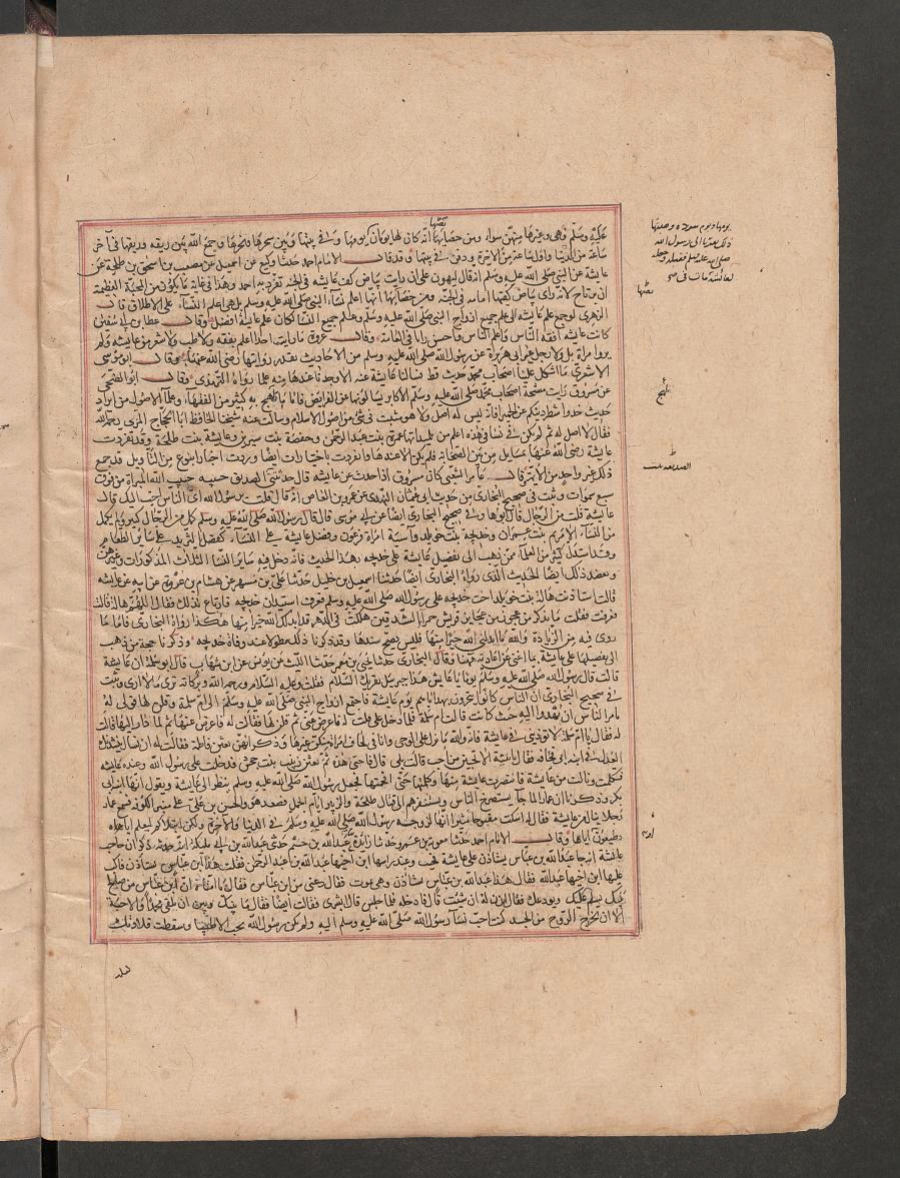 عليه وسلم فهي وغيرها منهن سواء ومن خصائصها انه كان لها يومان يومها و في بيتها وبين سحرها ونحرها وجمع الله بين ريقه وريقها في آخر
ساعة من الدنيا واول ساعة من الآخرة ودفن في بيتها وقد قال الامام احمد حدثنا وكيع عن اسمعيل عن مصعب بن اسحق بن طلحة عن
عايشة عن النبي صلى الله عليه وسلم انه قال ليهون على اني رايت بياض كف عايشة في الجنة تفرد به احمد وهذا في غاية ما يكون من المحبة العظيمة
ان يرتاح لانه راى بياض كفها امامه في الجنة ومن خصايصها انها اعلم نساء النبي صلى الله عليه وسلم بل هي اعلم النساء على الاطلاق قال
الزهري لو جمع علم عايشة الى علم جميع ازواج النبي صلى الله عليه وسلم وعلم جميع النسا لكان علم عايشة افضل وقال عطا بن ابي
كانت عايشة افقه الناس واعلم الناس واحسن رايا في العامة وقال عروة ما رايت احدا اعلم بفقه ولا طب ولا شعر من عايشة ولم
يروا مراة بل ولا رجل غير ابي هريرة عن رسول الله صلى الله عليه وسلم من الاحاديث بقدر روايتها رضي الله عنها وقال ابو موسى
الاشعري ما اشكل علينا اصحاب محمد حديث قط فسالنا عايشة عنه الا وجدنا عندها منه علما رواه الترمذي وقال ابو الضحى
عن مسروق رايت مشيخة اصحاب محمد صلى الله عليه وسلم الاكابر يسالونها عن الفرايض فاما ما يلهج به كثير من الفقهاء وعلما الاصول من ايراد
حديث خذوا شطر دينكم عن الحميراء فانه ليس له اصل ولا هو مثبت في شي من اصول الاسلام وسالت عنه شيخنا الحافظ ابا الحجاج المزي رحمه الله
فقال لا اصل له ثم لم يكن في نساء هذه اعلم من تلميذاتها عمرة بنت عبد الرحمن وحفصة بنت سيرين وعايشة بنت طلحة وقد تفردت
عايشة رضي الله عنها بمسايل من بين الصحابة فلم يكن الا عندها وانفردت باختيارات ايضا وردت اخبار بنوع من التاويل قد جمع
ذلك غير واحد من الايمة قال عامر الشعبي كان مسروق اذا حدث عن عايشة قال حدثتني الصديقة حبيبة حبيب الله المبراة من فوق
سبع سموات وثبت في صحيح البخاري من حديث ابي عثمان النهدي عن عمرو بن العاص انه قال قلت يرسول الله اي الناس احب اليك قال
عايشة قلت من الرجال قال ابوها وفي صحيح البخاري ايضا عن ابي موسى قال قال رسول الله صلى الله عليه وسلم كمل من الرجال كثير ولم يكمل
من النساء الا مريم بنت عمران وخديجة بنت خويلد وآسية امراة فرعون وفضل عايشة على النساء كفضل الثريد على ساير الطعام
وقد استدل كثير من العلماء ممن ذهب الى تفضيل عايشة على خديجة بهذا الحديث فانه دخل فيه ساير النسا الثلاث المذكورات وغيرهن
ويعضد ذلك ايضا الحديث الذي رواه البخاري ايضا حدثنا اسمعيل بن خليل حدثنا علي بن مسهر عن هشام بن عروة عن ابيه عن عايشة
قالت استاذنت هالة بنت خويلد اخت خديجة على رسول الله صلى الله عليه وسلم فعرف استيذان خديجة فارتاع لذلك فقال اللهم هالة قالت
فغرت فقلت ما تذكر من عجوز من عجايز قريش حمراء الشدقين هلكت في الدهر قد ابدلك الله خيرا منها هكذا رواه البخاري فاما ما
روي فيه من الزيادة والله ما ابدلني الله خيرا منها فليس يصح سندها وقد ذكرنا ذلك مطولا عند وفاة خديجة وذكرنا حجة من ذهب
الى تفضيلها على عايشة بما اغنى عن اعادته ههنا وقال البخاري حدثنا يحيى بن بكير حدثنا الليث عن يونس عن ابن شهاب قال ابو سلمة ان عايشة
قالت قال رسول الله صلى الله عليه وسلم يوما يا عايش هذا جبريل يقريك السلام فقلت وعليه السلام ورحمة الله وبركاته ترى مالا ارى وثبت
في صحيح البخاري ان الناس كانوا يتحرون بهداياهم يوم عايشة فاجتمع ازواج النبي صلى الله عليه وسلم الى ام سلمة وقلن لها قولي له
يامر الناس ان يهدوا اليه حيث كان قالت ام سلمة فلما دخل علي قلت له فاعرض عني ثم قلن لها فقالت له فاعرض عنها ثم لما دار اليها قالت
له فقال يا ام سلمة لا توذيني في عايشة فانه والله ما نزل علي الوحي وانا في لحاف امراة منكن غيرها وذكر انهن بعثن فاطمة فقالت له ان نساك ينشدنك
العدل في ابنة ابي قحافة فقال يا بنية الا تحبين من احب قالت بلى قال فاحبي هذه ثم بعثن زينب بنت جحش فدخلت على رسول الله وعنده عايشة
فتكلمت ونالت من عايشة فانتصرت عايشة منها وكلمتها حتى افحمتها فجعل رسول الله صلى الله عليه وسلم ينظر الى عايشة ويقول انها ابنة ابي
بكر وذكرنا ان عمارا لما جا يستصرخ الناس ويستنفرهم الى قتال طلحة والزبير ايام الجمل فصعد هو والحسن بن علي على منبر الكوفة فسمع عمار
رجلا ينال من عايشة فقال له اسكت مقبوحا منبوحا انها لزوجة رسول الله صلى الله عليه وسلم في الدنيا والآخرة ولكن الله ابتلاكم ليعلم اياه
تطيعون اياها وقال الامام احمد حدثنا معوية بن عمرو حدثنا زائدة عبدالله بن خثيم حدثني عبدالله بن ابي مليكة انه حدثه ذكوان حاجب
عايشة انه جا عبدالله بن عباس يستاذن على عايشة فجيت وعند راسها ابن اخيها عبدالله بن عبد الرحمن فقلت هذا ابن عباس يستاذن فاكب
عليها ابن اخيها عبدالله فقال هذا عبدالله بن عباس يستاذن وهي تموت فقالت دعني من ابن عباس فقال يا امتاه ان ابن عباس من صالح
بنيك يسلم عليك ويودعك فقالت ايذن له ان شيت قال فادخله فلما جلس قال ابشري فقالت ايضا فقال ما بينك وبين ان تلقي محمدا والاحبة
الا ان تخرج الروح من الجسد كنت احب نسا رسول الله صلى الله عليه وسلم اليه ولم يكن رسول الله يحب الا طيبا وسقطت قلادتك
يومها ويوم سودة وهبتها
ذلك تقربا الى رسول الله
صلى الله عليه وسلم